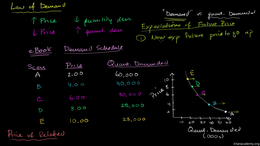 Law of Demand
↑ Price ↓ quantity dem
↓ Price ↑ quant. dem
"Demand" ≠ quant. Demanded
Expectations of Future Price
① Now exp future price to go up
eBook Demand Schedule
Scen Price Quant. Demanded
A 2.00 60,000
B 4.00
C 6.00 30,000
D 8.00
E 10.00 23,000
Price
10
8
6
4
2
E
D
C
B
A
Quant. Demanded
(000s)
Price of Related